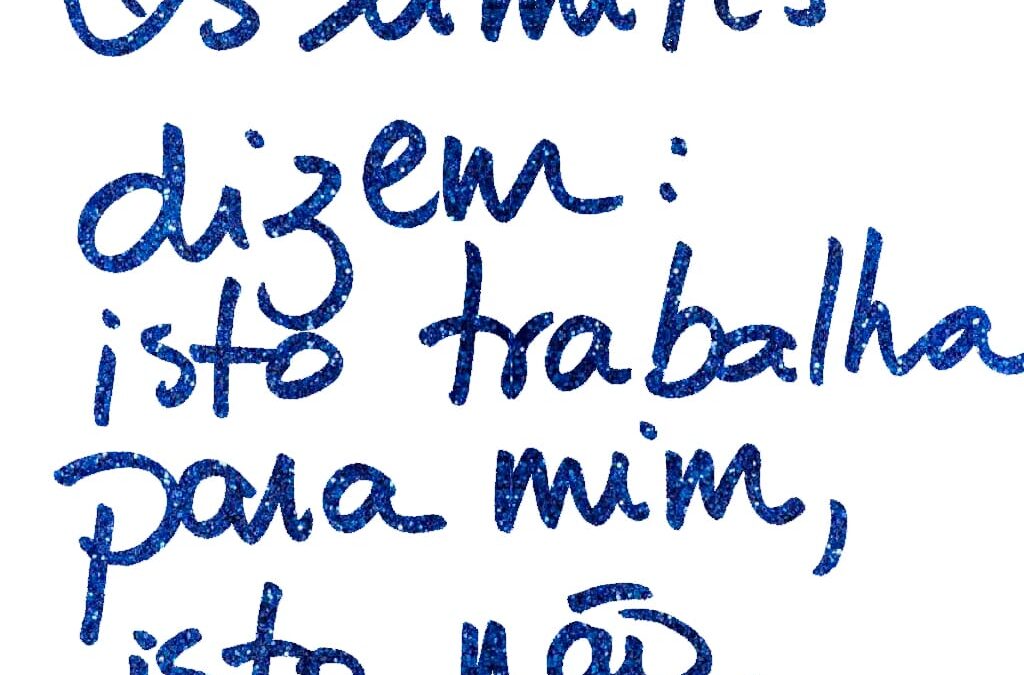 Os limites
dizem:
isto trabalha
para mim,
isto não.